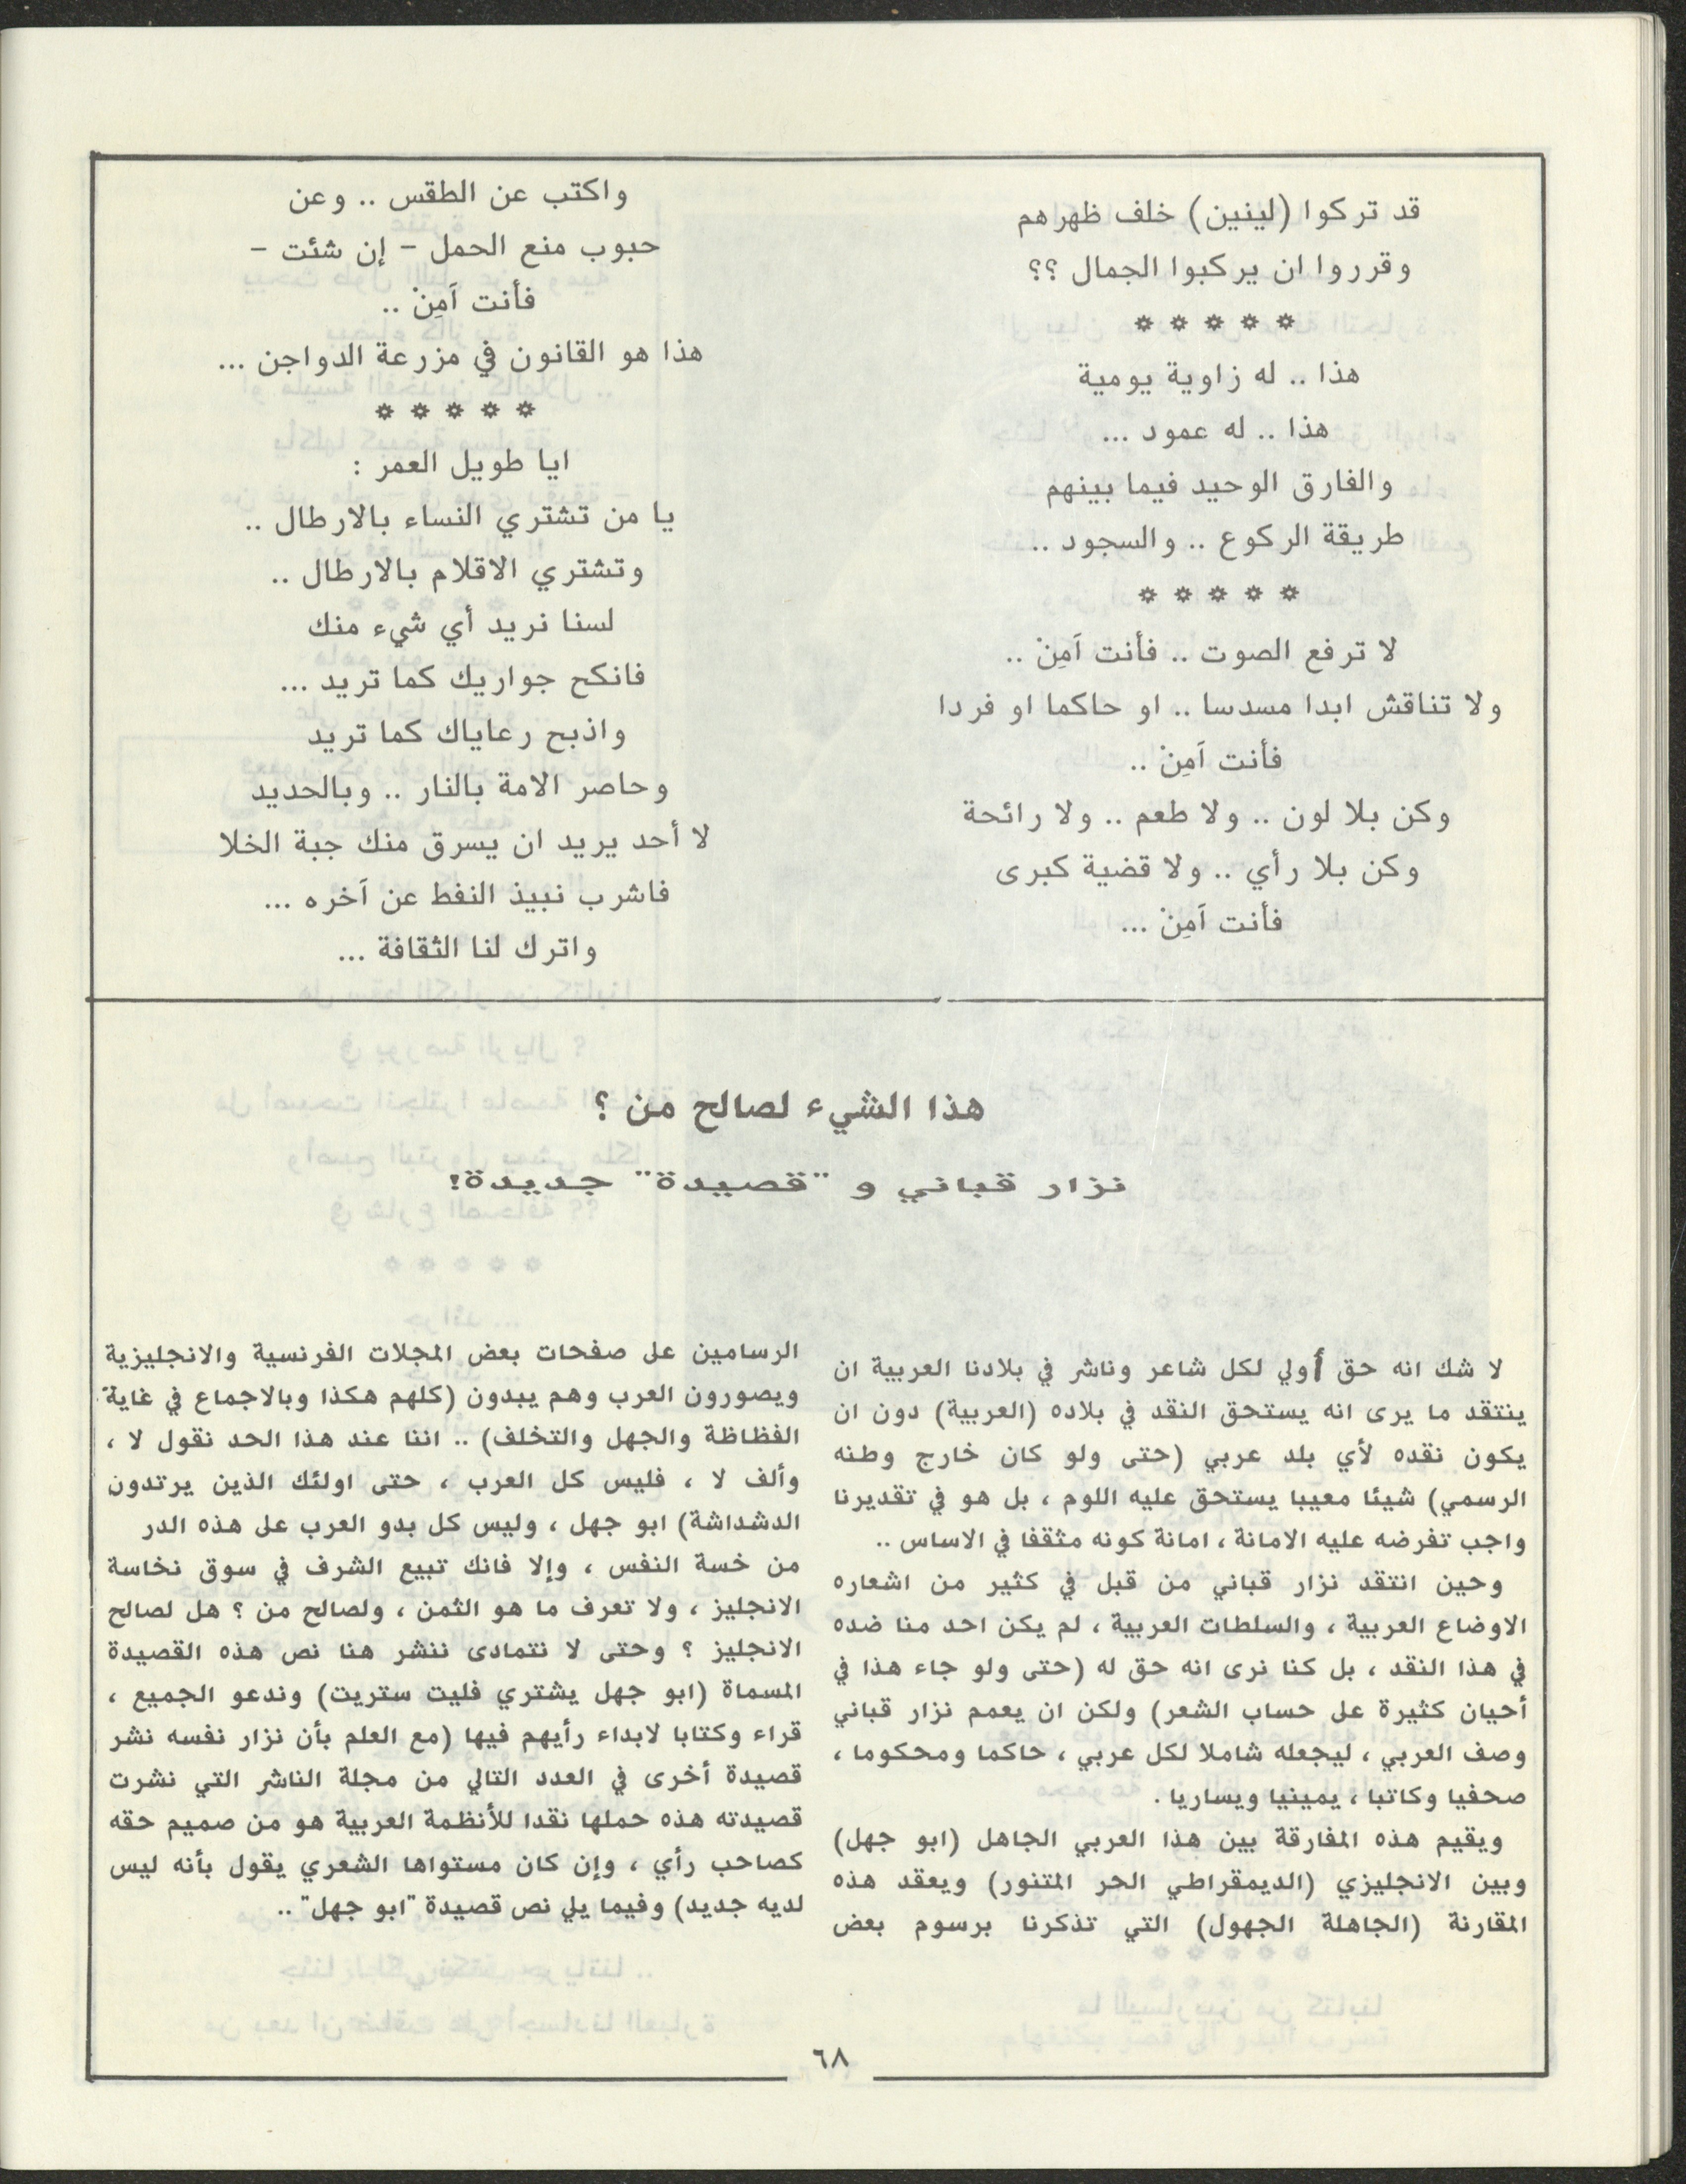 قد تركوا (لينين) خلف ظهرهم
وقرروا ان يركبوا الجمال ؟؟
* * * * *
هذا .. له زاوية يومية
هذا .. له عمود ...
والفارق الوحيد فيما بينهم
طريقة الركوع .. والسجود ..
* * * * *
لا ترفع الصوت .. فأنت آمِنْ ..
ولا تناقش ابدا مسدسا .. او حاكما او فردا
فأنت آمِنْ ..
وكن بلا لون .. ولا طعم .. ولا رائحة
وكن بلا رأي .. ولا قضية كبرى
فأنت آمِنْ ...
واكتب عن الطقس .. وعن
حبوب منع الحمل – إن شئت –
فأنت آمِنْ ..
هذا هو القانون في مزرعة الدواجن ...
* * * * *
ايا طويل العمر :
يا من تشتري النساء بالارطال ..
وتشتري الاقلام بالارطال ..
لسنا نريد أي شيء منك
فانكح جواريك كما تريد ...
واذبح رعاياك كما تريد
وحاصر الامة بالنار .. وبالحديد
لا أحد يريد ان يسرق منك جبة الخلا
فاشرب نبيذ النفط عن آخره ...
واترك لنا الثقافة ...
هذا الشيء لصالح من ؟
نزار قباني و "قصيدة" جديدة!
لا شك انه حق أولي لكل شاعر وناشر في بلادنا العربية ان
ينتقد ما يرى انه يستحق النقد في بلاده (العربية) دون ان
يكون نقده لأي بلد عربي (حتى ولو كان خارج وطنه
الرسمي) شيئا معيبا يستحق عليه اللوم ، بل هو في تقديرنا
واجب تفرضه عليه الامانة ، امانة كونه مثقفا في الاساس ..
وحين انتقد نزار قباني من قبل في كثير من اشعاره
الاوضاع العربية ، والسلطات العربية ، لم يكن احد منا ضده
في هذا النقد ، بل كنا نرى انه حق له (حتى ولو جاء هذا في
أحيان كثيرة على حساب الشعر) ولكن ان يعمم نزار قباني
وصف العربي ، ليجعله شاملا لكل عربي ، حاكما ومحكوما ،
صحفيا وكاتبا ، يمينيا ويساريا .
ويقيم هذه المفارقة بين هذا العربي الجاهل (ابو جهل)
وبين الانجليزي (الديمقراطي الحر المتنور) ويعقد هذه
المقارنة (الجاهلة الجهول) التي تذكرنا برسوم بعض
الرسامين على صفحات بعض المجلات الفرنسية والانجليزية
ويصورون العرب وهم يبدون (كلهم هكذا وبالاجماع في غاية
الفظاظة والجهل والتخلف) .. اننا عند هذا الحد نقول لا ،
وألف لا ، فليس كل العرب ، حتى اولئك الذين يرتدون
الدشداشة) ابو جهل ، وليس كل بدو العرب على هذه الدر
من خسة النفس ، وإلا فانك تبيع الشرف في سوق نخاسة
الانجليز ، ولا تعرف ما هو الثمن ، ولصالح من ؟ هل لصالح
الانجليز ؟ وحتى لا نتمادى ننشر هنا نص هذه القصيدة
المسماة (ابو جهل يشتري فليت ستريت) وندعو الجميع ،
قراء وكتابا لابداء رأيهم فيها (مع العلم بأن نزار نفسه نشر
قصيدة أخرى في العدد التالي من مجلة الناشر التي نشرت
قصيدته هذه حملها نقدا للأنظمة العربية هو من صميم حقه
كصاحب رأي ، وإن كان مستواها الشعري يقول بأنه ليس
لديه جديد) وفيما يلي نص قصيدة "ابو جهل" ..
٦٨